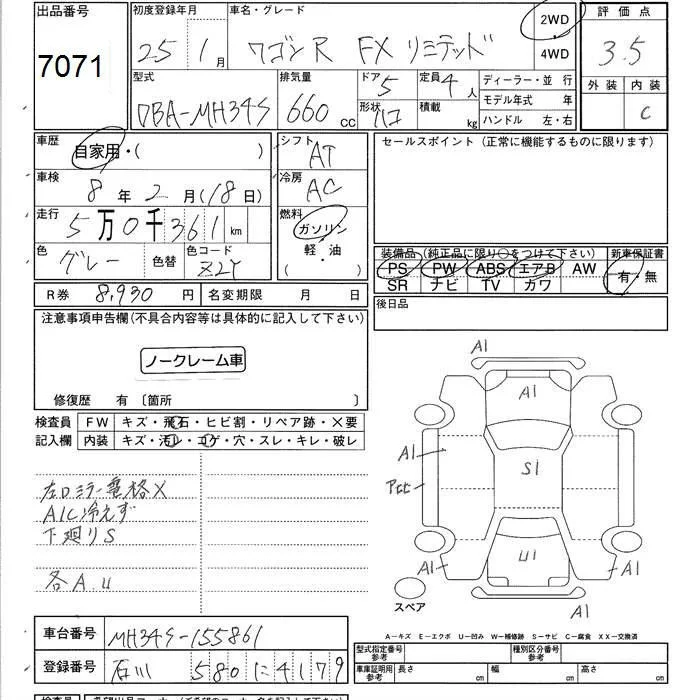 出品番号
7071
初度登録年月
25年 1月
車名・グレード
ワゴンR FX リミテッド
2WD
4WD
評価点
3.5
外装 内装
C
型式
DBA-MH34S
排気量
660 CC
ドア 5
形状
定員 4人
積載 kg
ディーラー・並行
モデル年式 年
ハンドル 左・右
車歴
自家用・( )
シフト
AT
セールスポイント(正常に機能するものに限ります)
車検
8年 2月(18日)
冷房
AC
走行
5万0千361km
燃料
ガソリン
軽・油
( )
色
グレー
色替
色コード
Z2Y
装備品(純正品に限り○をつけて下さい)
新車保証書
PS PW ABS エアB AW
SR ナビ TV カワ
有・無
R券 8,930円
名変期限 月 日
後日品
注意事項申告欄(不具合内容等は具体的に記入して下さい)
ノークレーム車
修復歴 有 〔箇所 〕
検査員
記入欄
FW キズ・飛石・ヒビ割・リペア跡・X要
内装 キズ・汚レ・コゲ・穴・スレ・キレ・破レ
左Dミラー電格X
A/C冷えず
下廻りS
各A.U
A1
A1
A1
S1
Pヒビ
U1
A1
A1
A1
スペア
A-キズ E-エクボ U-凹み W-補修跡 S-サビ C-腐食 XX-交換済
車台番号
MH34S-155861
登録番号
石川 580 に 4179
型式指定番号 参考
種別区分番号 参考
車庫証明用 参考
長さ cm
幅 cm
高さ cm